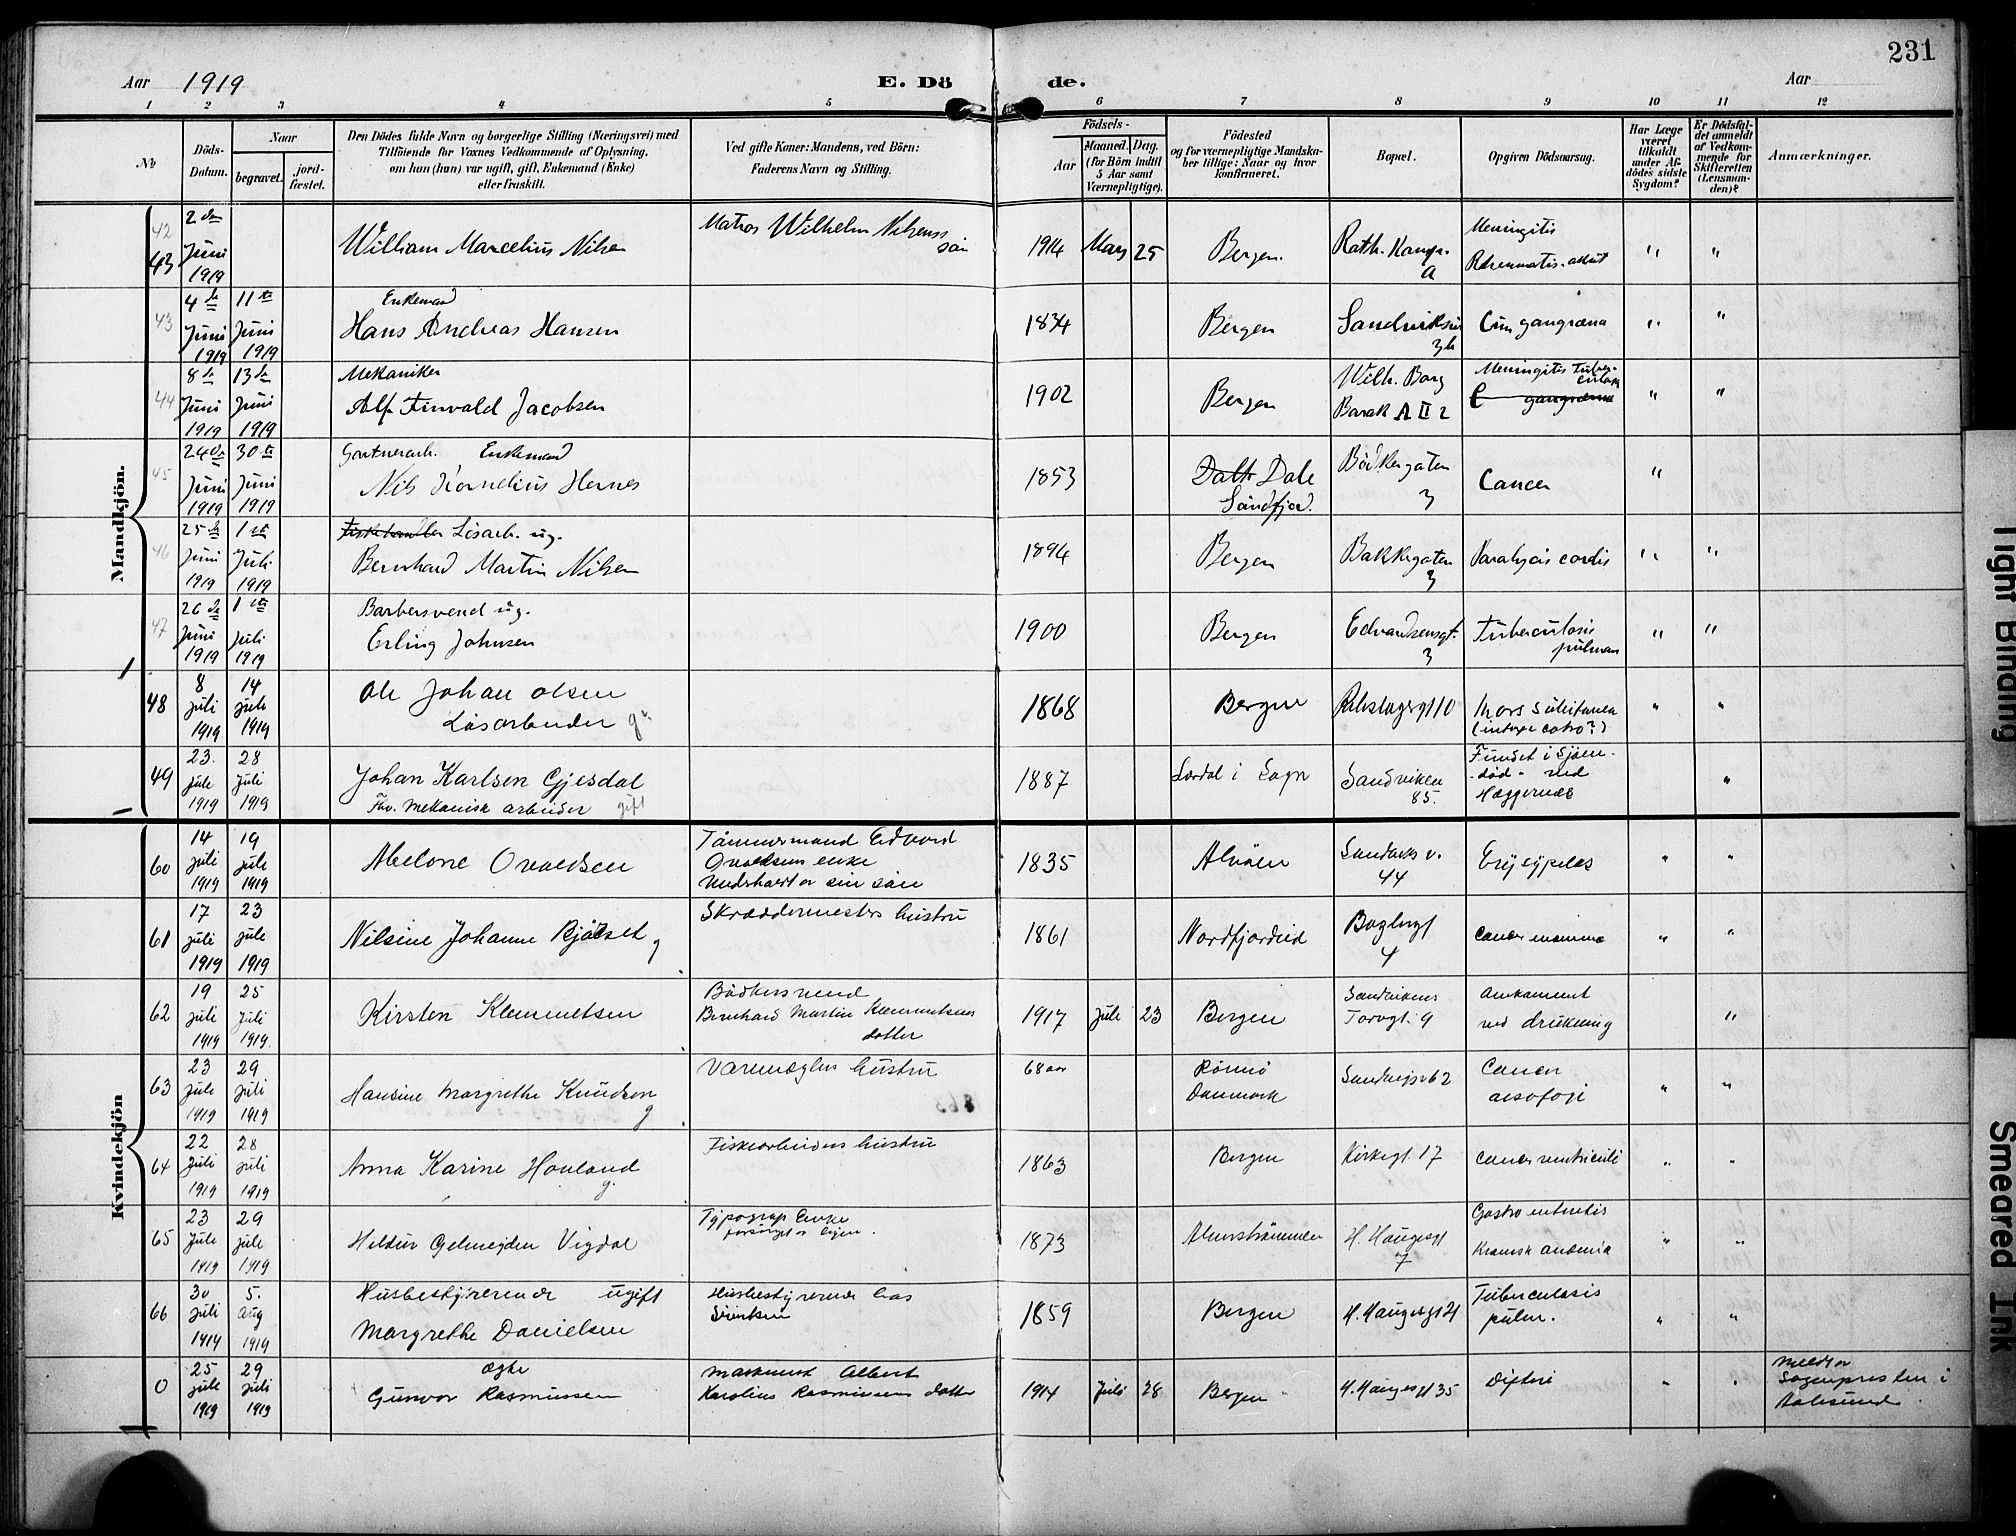 231
Aar 1919 E. Dö de. Aar
1 2 3 4 5 6 7 8 9 10 11 12
No Döds-Datum. Naar begravet. jord-fæstet.
Den Dödes fulde Navn og borgerlige Stilling (Næringsvei) med Tilföiende for Voxnes Vedkommende af Oplysning, om han (hun) var ugift, gift, Enkemand (Enke) eller fraskilt.
Ved gifte Koner: Mandens, ved Börn: Faderens Navn og Stilling.
Födsels- Aar Maaned. Dag. (for Börn indtil 5 Aar samt Værnepligtige).
Födested og for værnepligtige Mandskaber tillige: Naar og hvor konfirmeret.
Bopæl.
Opgiven Dödsaarsag.
Har Læge været tilkaldt under Afdödes sidste Sygdom?
Er Dödsfaldet anmeldt af Vedkommende for Skifteretten (Lensmanden)?
Anmærkninger.
Mandkjön.
42 43 2 Juni 1919 William Marcelius Nilsen Matros Wilhelm Nilsens sön 1914 Mars 25 Bergen. Meningitis " "
43 4 Juni 1919 11 Juni 1919 Enkemand Hans Andreas Hansen 1834 Bergen gangræna " "
44 8 Juni 1919 13 Juni 1919 Mekaniker Alf Jacobsen 1902 Bergen Wilh. Barak A II 2 Meningitis gangræna " "
45 24 Juni 1919 30 Juni 1919 Enkemand Nils Kornelius Hernes 1853 Dale Söndfjord. Bödkergaten 3 Cancer "
46 25 Juni 1919 1 Juli 1919 Lösarb. ug. Bernhard Martin Nilsen 1894 Bergen Bakkegaten 3 Paralysis cordis " "
47 26 Juni 1919 1 Juli 1919 Barbersvend ug. Erling Johnsen 1900 Bergen Edvardsensgt. 3 Tuberculosis pulmon " "
48 8 juli 1919 14 juli 1919 Ole Johan Olsen Lösarbeider g. 1868 Bergen 10 Mors subitanea " "
49 23. jule 1919 28 Juli 1919 Johan Karlsen Gjesdal Fhv. Mekanisk arbeider gift 1887 Lærdal i Sogn Sandviken 85. Fundet i Sjöen död ved Hæggernæs "
Kvindekjön
60 14 juli 1919 19 jule 1919 Abelone Tömmermand Edvard enke sin sön 1835 Alvöen 44 Erysypelas " "
61 17 juli 1919 23 jule 1919 Nilsine Johanne g Skræddermesters hustru 1861 Nordfjordeid 4 cancer mamma " "
62 19 juli 1919 25 juli 1919. Kirsten Klemmetsen Bödkersvend Bernhard Martin Klemmetsens datter 1917 Jule 23 Bergen Sandvikens Torvgt. 9 Ankommet ved drukning "
63 23 jule 1919 29 juli 1919 Hansine Margrethe Knudsen g Varemæglers hustru 68 aar Römö Danmark 62 Cancer " "
64 22 Juli 1919 28 juli 1919 Anna Karine Hovland g. Fiskearbeiders hustru 1863 Bergen Kirkegt. 17 cancer ventriculi " "
65 23 Jule 1919 29 jule 1919 Hildur Vigdal Typograf enke 1873 H. Haugesgt 7 Gastro enteritis anæmia " "
66 30 juli 1919 5. Aug 1919 Husbestyrerende ugift Margrethe Danielsen Husbestyrerende hos 1859 Bergen H. Haugesgt 21 Tuberculosis pulm. " "
0 25 jule 1919 29 juli 1919 ægte Gunvor Rasmussen Maskinist Albert Karolius Rasmussens datter 1914 Juli 28 Bergen H. Haugesgt 35 Difteri " " Meldt av Sogneprästen i Aalesund.
Tight Binding
Smeared Ink